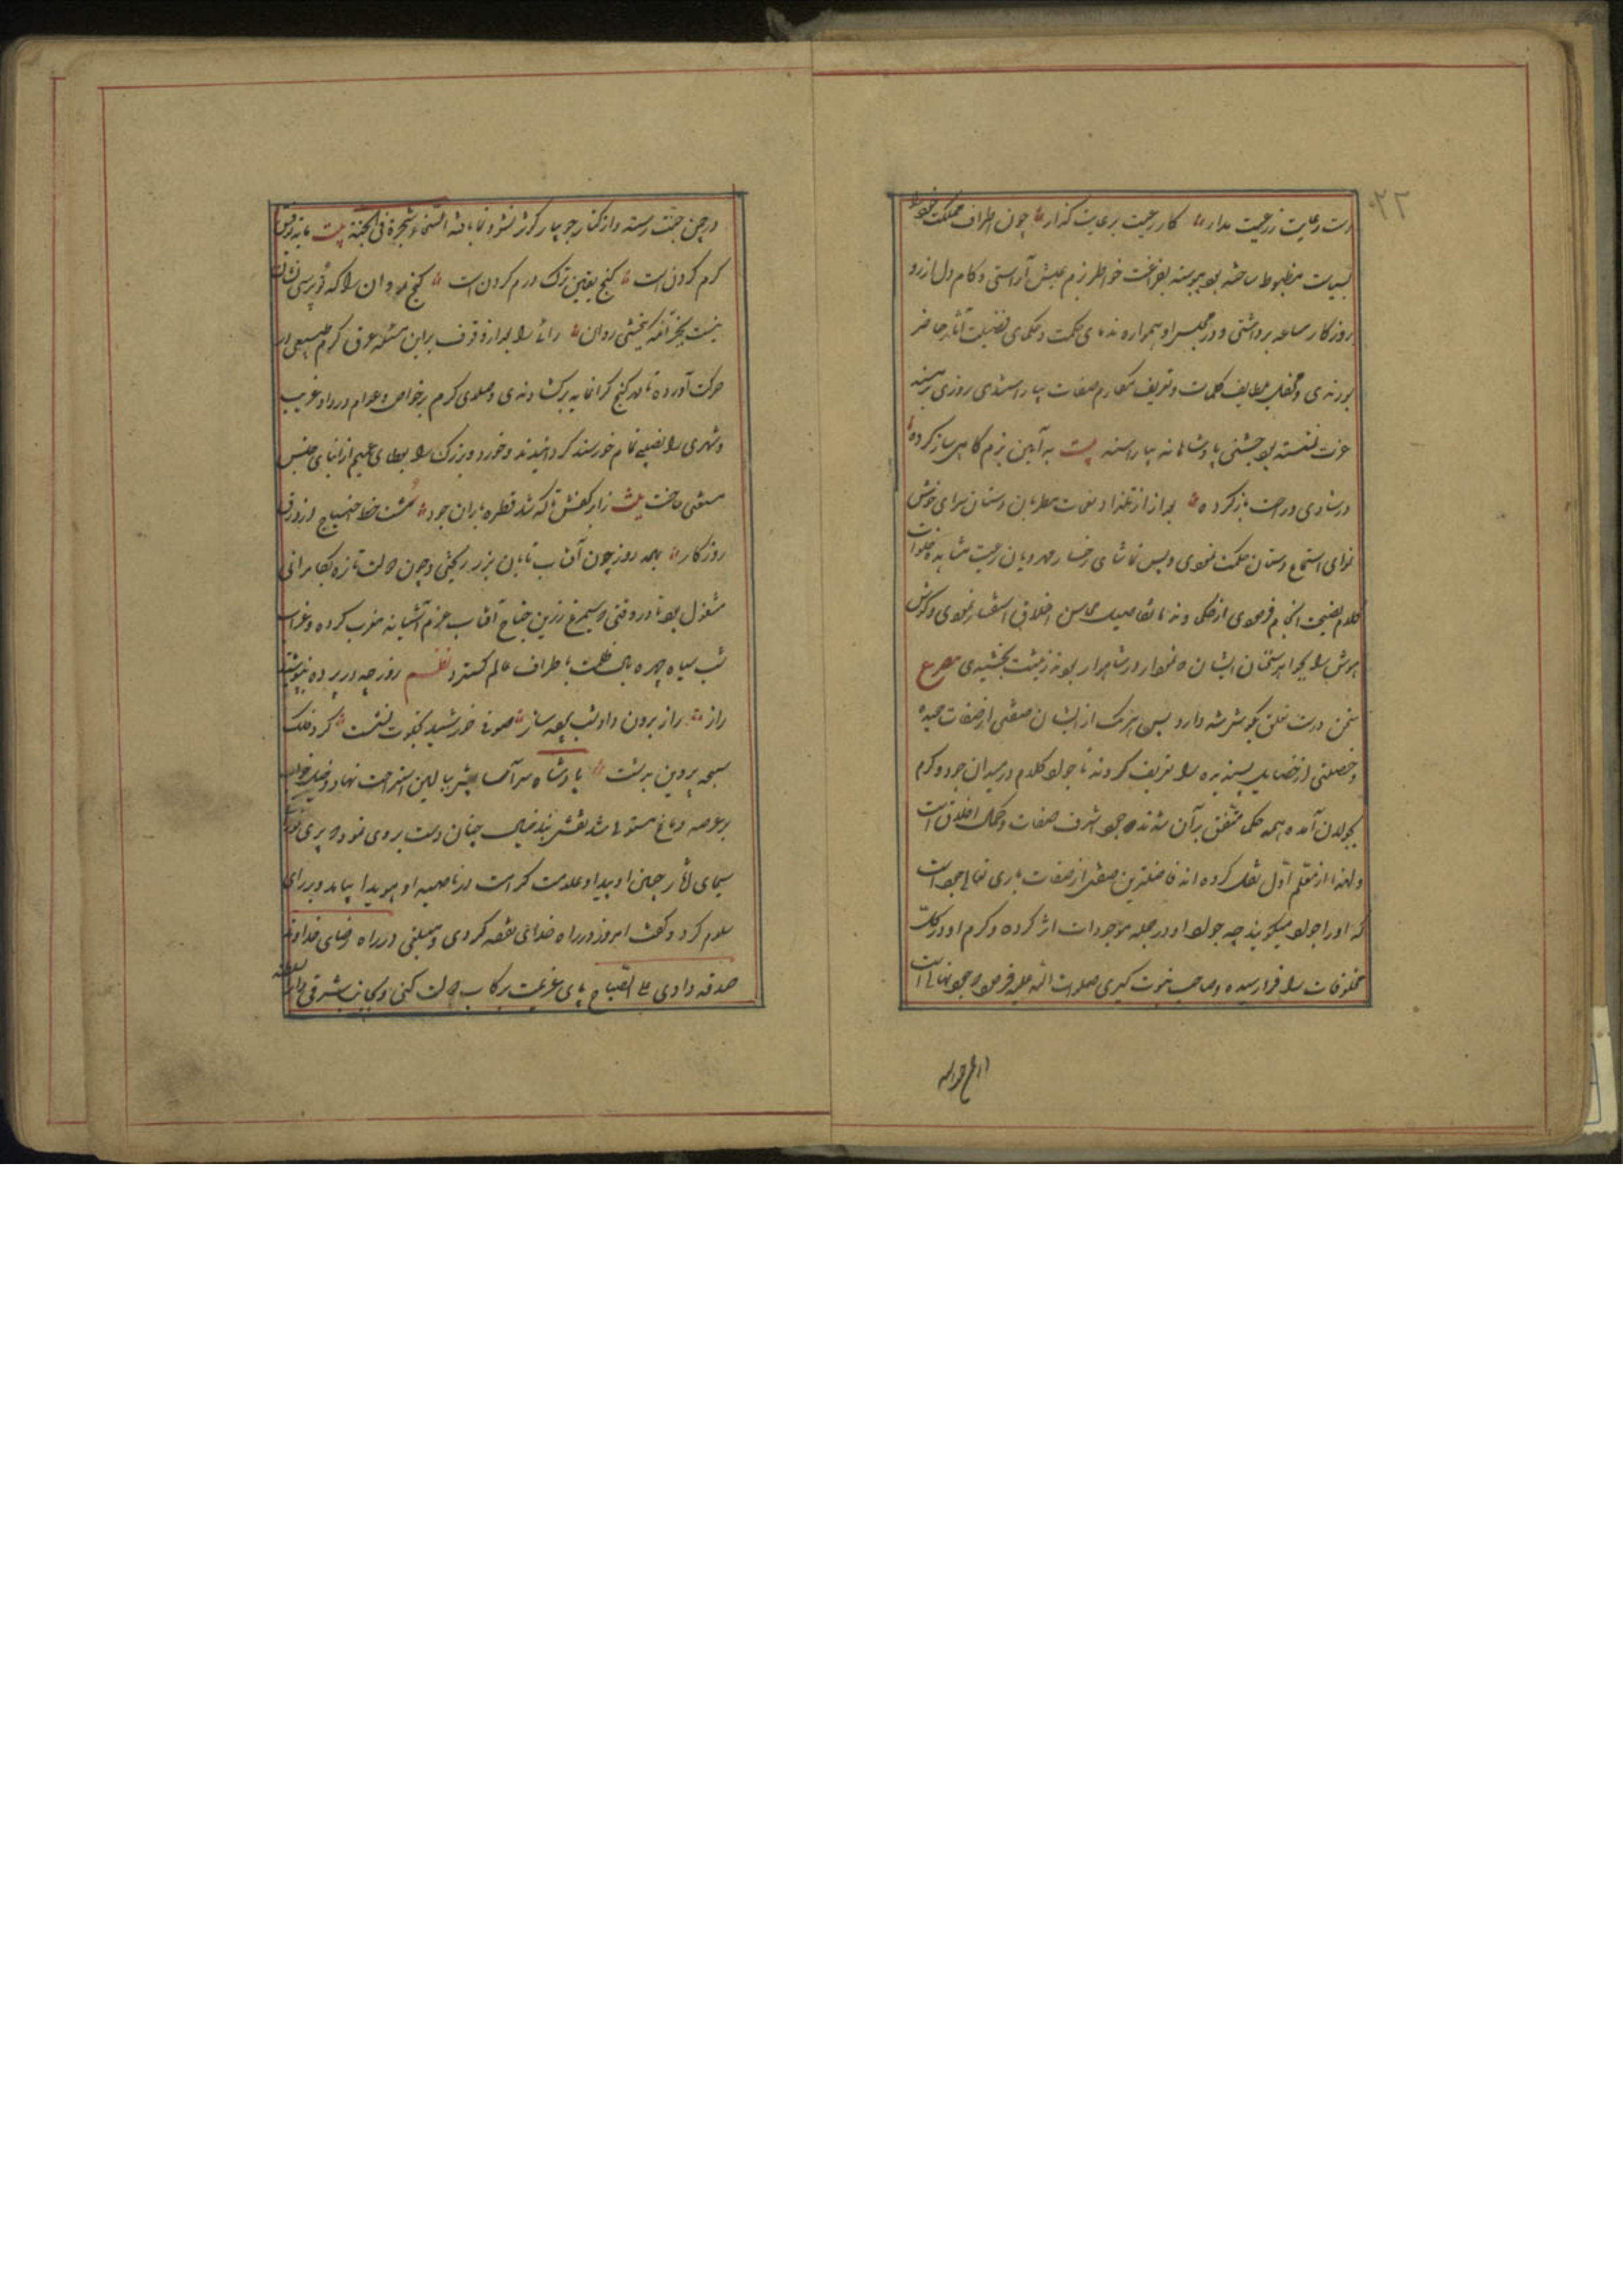 ۲۲
دست رعایت ز رعیت مدار کار رعیت برعایت گذار چون اطراف مملکت خود را
بسیاست مضبوط ساخته بود پیوسته بفراغت خواطر بزم عیش آراستی و کام دل از رو
روزگار ساعد برداشتی و در مجلس او همواره ندمای حکمت و حکمای فضیلت آثار حاضر
بودندی و محفل بلطایف کلمات و تعریف مکارم صفات بیاراستندی روزی بر مسند
عزت نشسته بود جشنی پادشاهانه بیاراسته بیت به آیین بزم گاهی ساز کرده
در شادی و راحت باز کرده بعد از تلذذ از نغمات مطربان دستان سرای خوش
نوای استماع دستان حکمت نمودی و پس تماشای رخسار مهرویان رغبت مشاهده جلوات
کلام نصیحت انجام فرمودی از حکما و ندما تفاصیل محاسن اخلاق استفسار نمودی و گوش
هوش را بجواهر سخنان ایشان که نموار در شاهوار بودند زینت بخشیدی مصرع
سخن درست نلق گوش شه دارد پس هر یک از ایشان صفتی از صفات حمیده
و خصلتی از خصایل پسندیده را تعریف کردند تا جواد کلام در میدان جود و کرم
بجولان آمده همه حکما متفق بر آن شدند که جود اشرف صفات و اکمل اخلاق است
و لهذا از معلم اول نقل کرده اند که فاضلترین صفتی از صفات باری تعالی جود است
که او را جواد میگویند چه جود او در جمله موجودات اثر کرده و کرم او در کل
مخلوقات را فرا رسیده و صاحب نبوت کبری صلوات الله علیه فرمود که جود نهالیست
در چمن جنت رسته و از کنار جویبار کوثر نشو و نما یافته السخاء شجرة فی الجنة بیت مایه توفیق
کرم کردن است گنج یقین ترک درم کردن است گنج روان را که تو پرسی نشان
نیست بجز آنکه ببخشی روان رای را بعد از وقوف بر این مسئله عرق کرم طبیعی در
حرکت آورده تا در گنج گرانمایه برگشادندی و صلای کرم بر خواص و عوام در داد و غریب
و شهری را بنصیبی تمام خورسند گردانیدند و خورد و بزرگ را بعطای عمیم از ابنای جنس
مستغنی ساخت بیت ز ابر کفش که شد قطره باران جود شست خط احتیاج از ورق
روزگار همه روز چون آفتاب تابان بزر بخشی و چون دولت تازه بکامرانی
مشغول بود تا در وقتی که سیمرغ زرین جناح آفتاب عزم آشیانه مغرب کرده و غراب
شب سیاه چهره بال ظلمت باطراف عالم گسترد نظم روز چو در پرده بپوشید
راز راز برون داد شب پرده ساز صوفی خورشید بخلوت نشست کرد فلک
سبحه پروین بدست پادشاه سر آسایش ببالین استراحت نهاد و خیل خواب
بر عرصه دماغ مستولی شد نقش بند خیال چنان دست بر وی نمود که پیری نورانی
سیمای آثار جبین او پیدا و علامت کرامت در ناصیه او هویدا بیامد و بر رای
سلام کرد و گفت امروز در راه خدای نفقه کردی و مبلغی در راه رضای خداوند
صدقه دادی علی الصباح پای عزیمت در رکاب دولت کنی و بجانب شرقی دار السلطنه